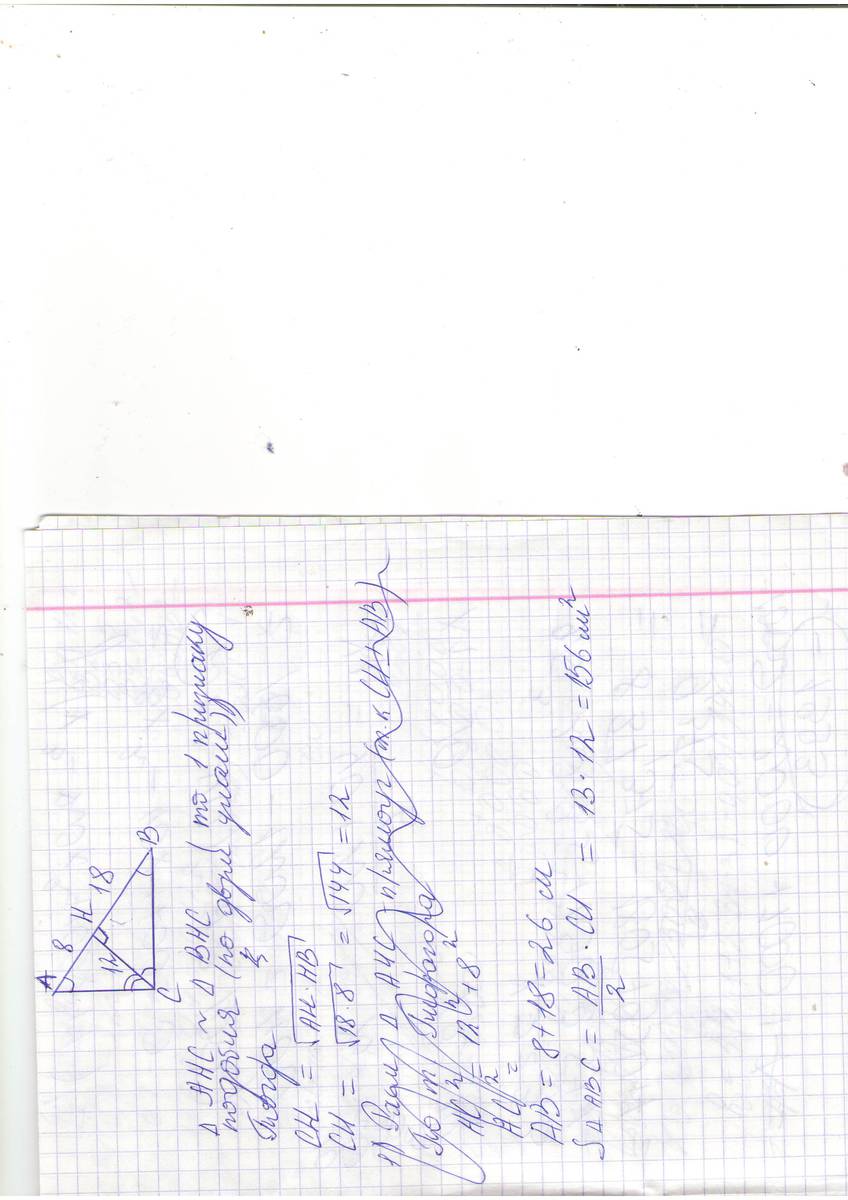 A
8
H
18
B
12
C
Δ AHC ~ Δ BHC (по 1 признаку
подобия (по двум углам))
Тогда
CH = √AH·HB
CH = √18·8 = √144 = 12
1) Расм Δ AHC прямоуг (т.к CH ⊥ AB)
По т Пифагора
AC² = 12² + 8²
AC² =
AB = 8+18=26 см
S Δ ABC = AB/2 · CH = 13·12=156 см²